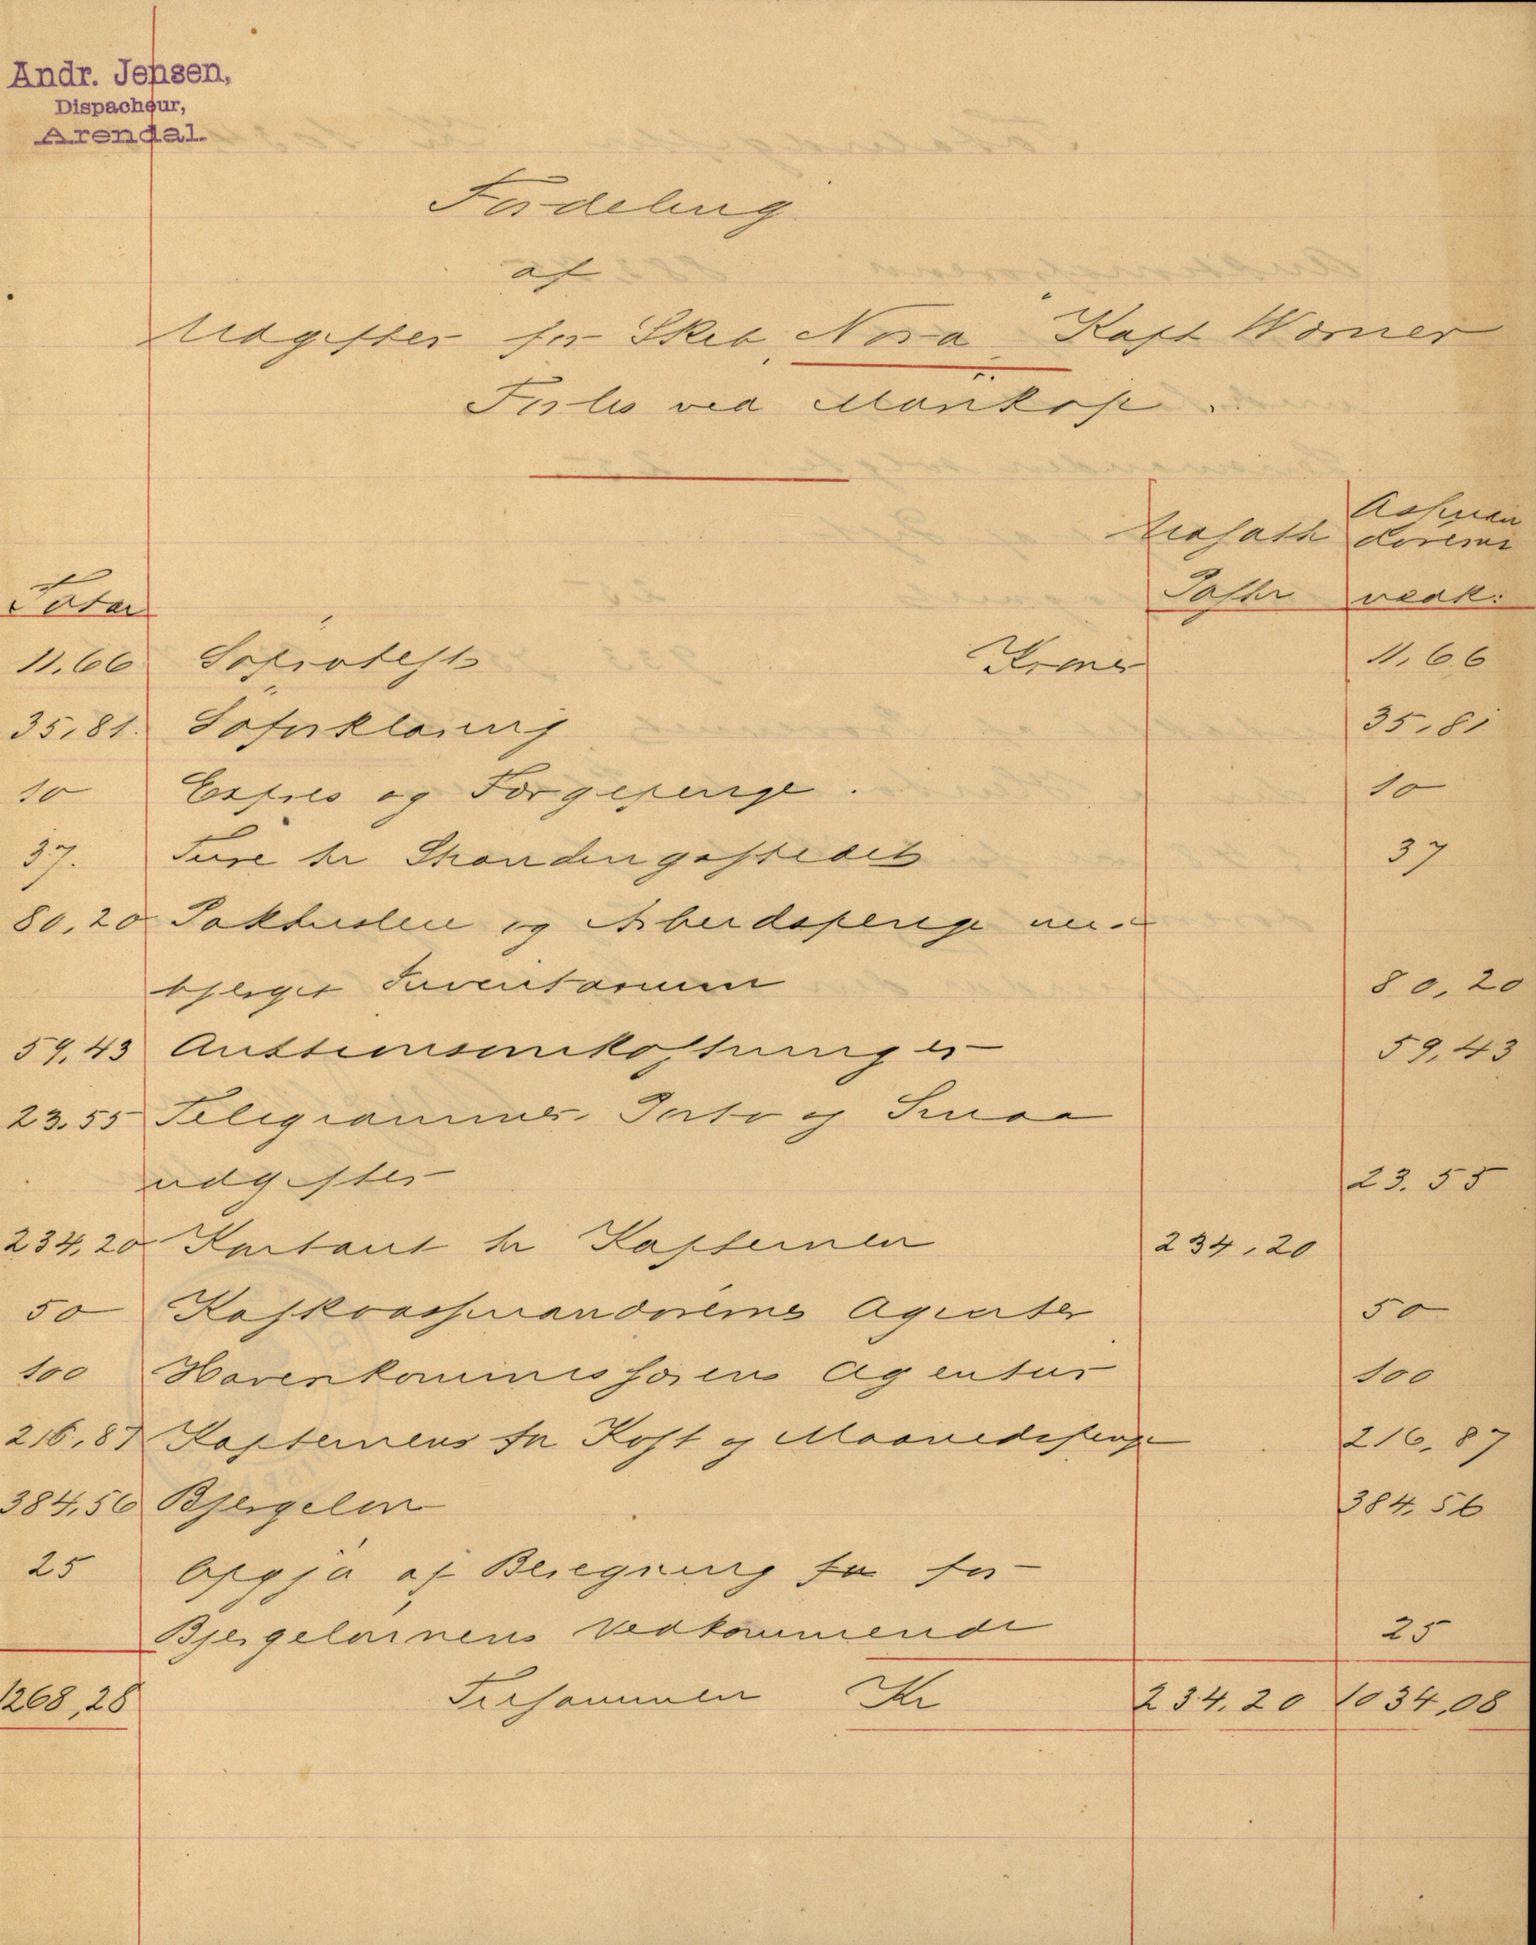 Andr. Jensen,
Dispacheur,
Arendal.
Fordeling
af
Udgifter for Skib „Nora” Kapt Wörner
Forlis ved Mönkop.
Assuran
Udsatte dörerne
Total Poster vedk:
11.66 Söprotest Kroner 11.66
35,81. Söforklaring 35,81
10 Expres og Færgepenge. 10
37. Turé til Strandingsstedet 37
80,20 Pakhusleie og Arbeidspenge ved
bjerget Inventarium 80,20
59,43 Auktionsomkostninger 59,43
23.55 Telegrammer Porto og Smaa
udgifter 23.55
234,20 Kontant til Kapteinen 234,20
50 Kaskoassurandörernes Agenter 50
100 Havenkommissörens Agentur 100
216,87 Kapteinens for Kost og Maanedspenge 216,87
384,56 Bjergelön 384,56
25 Opgjör af Beregning for
Bjergelönnens Vedkommende 25
1268,28 Tilsammen Kr 234.20 1034,08